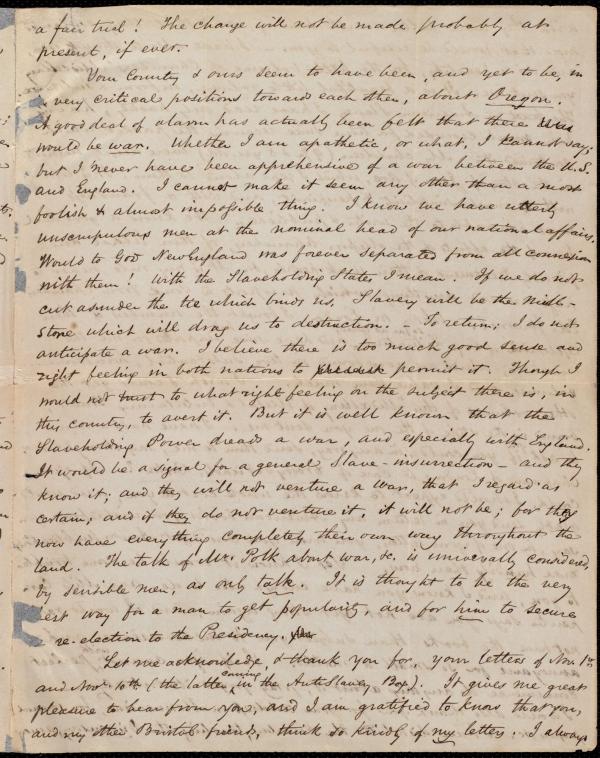 a fair trial! The change will not be made probably at
present, if ever.
Your Country & ours seem to have been, and yet to be, in
very critical positions towards each other, about Oregon.
A good deal of alarm has actually been felt that there
would be war. Whether I am apathetic, or what, I cannot say;
but I never have been apprehensive of a war between the U.S.
and England. I cannot make it seem any other than a most
foolish & almost impossible thing. I know we have utterly
unscrupulous men at the nominal head of our national affairs.
Would to God New England was forever separated from all connexion
with them! With the Slaveholding States I mean. If we do not
cut asunder the tie which binds us, Slavery will be the mill-
stone which will drag us to destruction. – To return; I do not
anticipate a war. I believe there is too much good sense and
right feeling in both nations to permit it. Though I
would not trust to what right feeling on the subject there is, in
this country, to avert it. But it is well known that the
Slaveholding Power dreads a war, and especially with England.
It would be a signal for a general Slave-insurrection – and they
know it; and they will not venture a war, that I regard as
certain; and if they do not venture it, it will not be; for they
now have everything completely their own way throughout the
land. The talk of Mr. Polk about war, &c. is universally considered,
by sensible men, as only talk. It is thought to be the very
best way for a man to get popularity, and for him to secure
re-election to the Presidency.
Let me acknowledge, & thank you for, your letters of Nov. 1st
and Nov. 10th (the latter coming in the AntiSlavery Box). It gives me great
pleasure to hear from you, and I am gratified to know that you,
and my other Bristol friends, think so kindly of my letters. I always